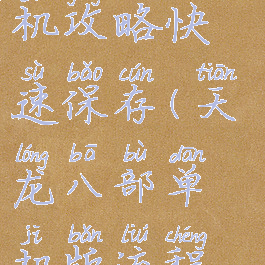 机攻略快
sù bǎo cún tiān
速保存(天
lóng bā bù dān
龙八部单
jī bǎn liú chéng
机版流程